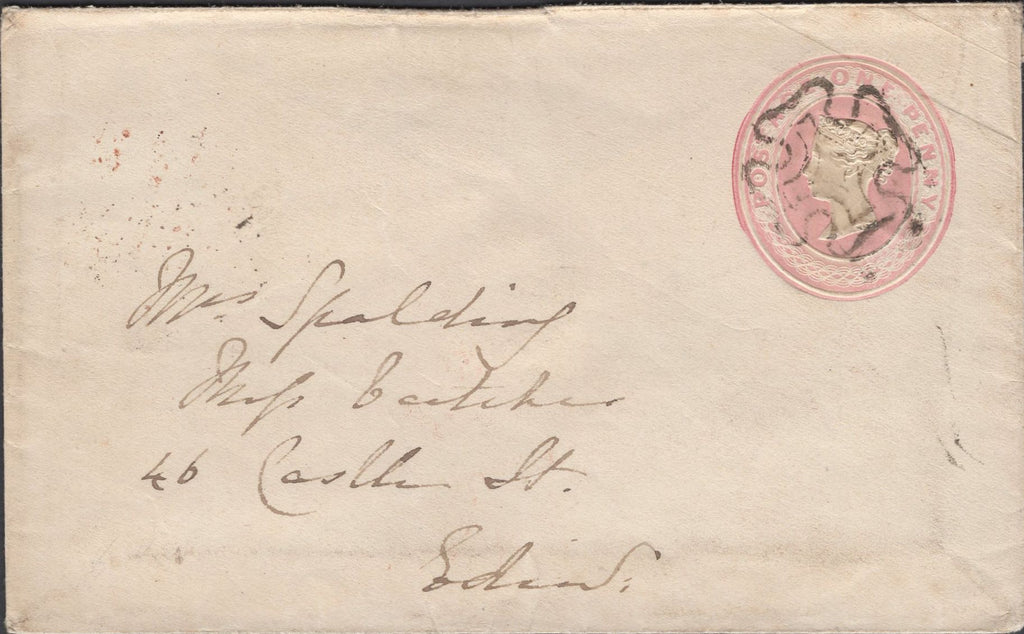 POSTAGE ONE PENNY
Mrs Spalding
Miss
46 Castle St.
Edinr.